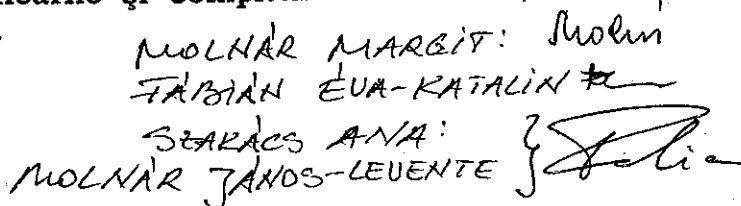 și
MOLNÁR MARGIT:
FÁBIÁN ÉVA-KATALIN
SZAKÁCS ANA:
MOLNÁR JÁNOS-LEVENTE }